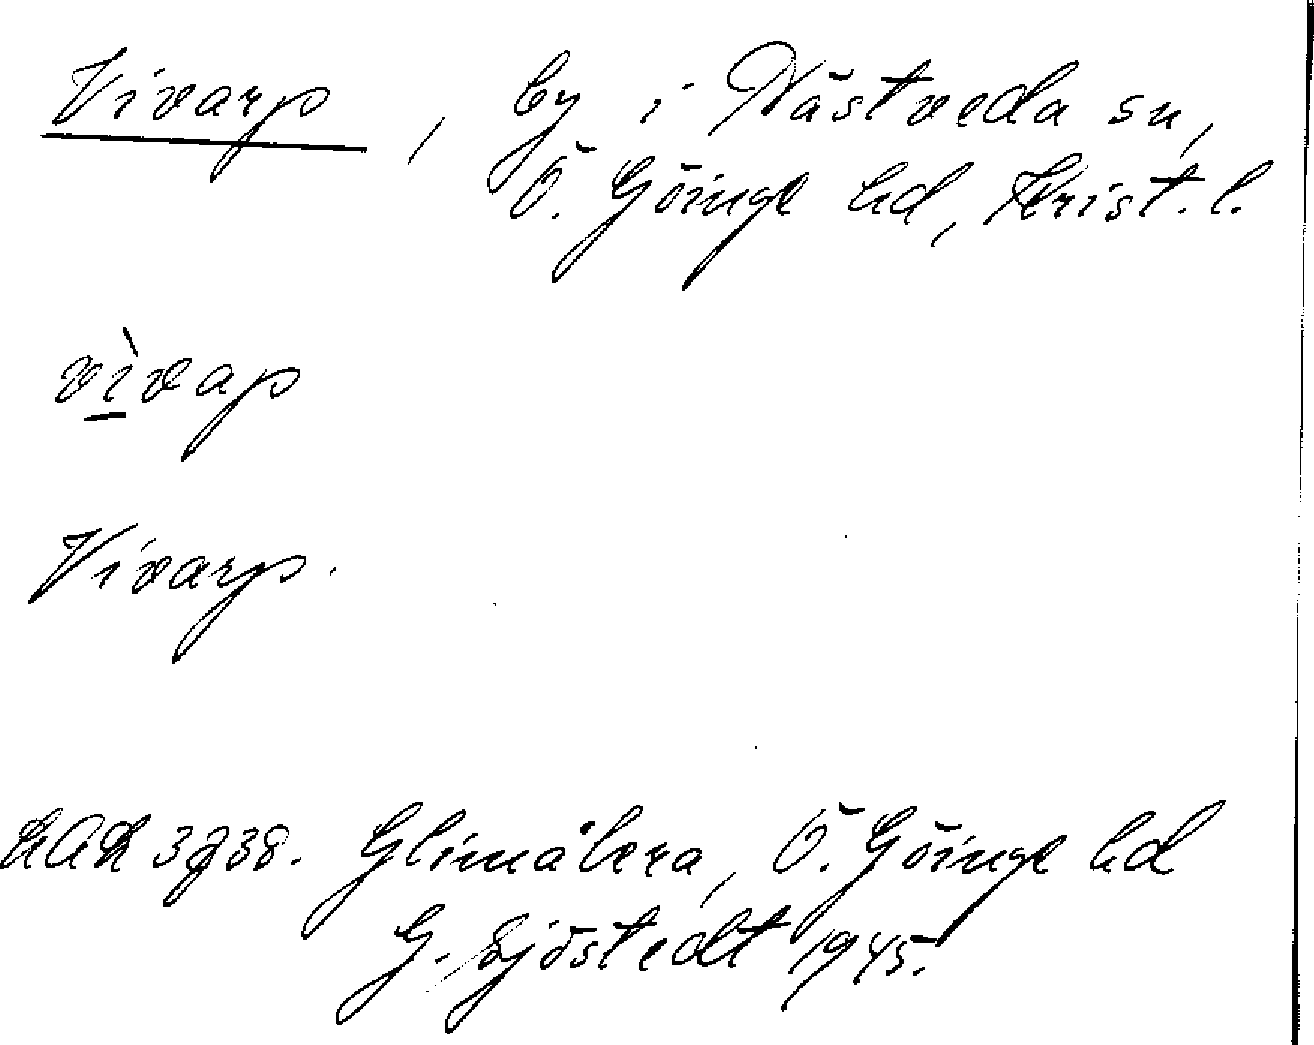 Vivarp, by i Västveda sn,
Ö. Göinge hd, Krist. l.
vìvap
Vivarp.
LAL 3738. Glimåkra, Ö. Göinge hd
G. Sjöstedt 1945.